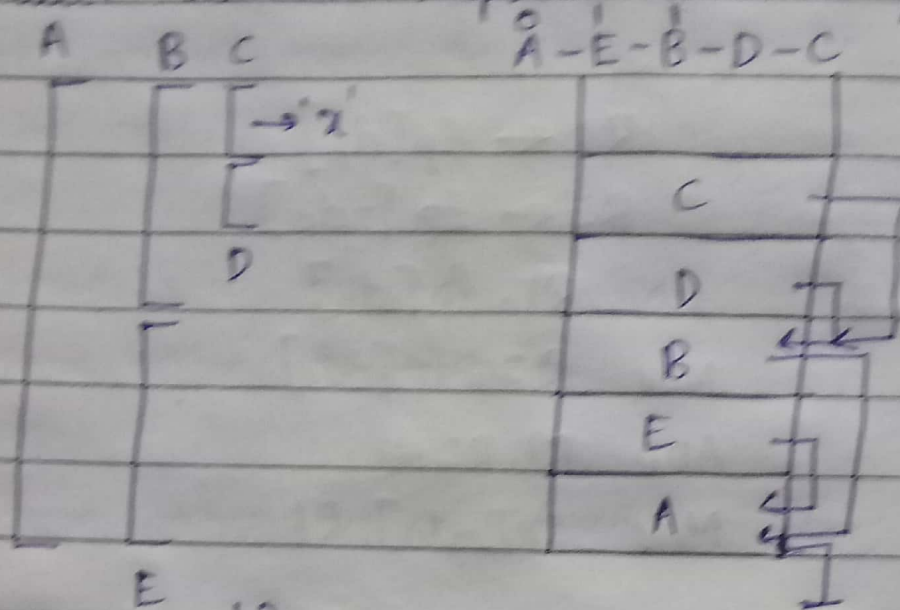 A B C
→ 'x'
D
E
0 1 1
A - E - B - D - C
C
D
B
E
A